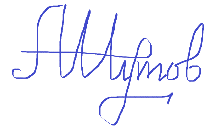 АШутов